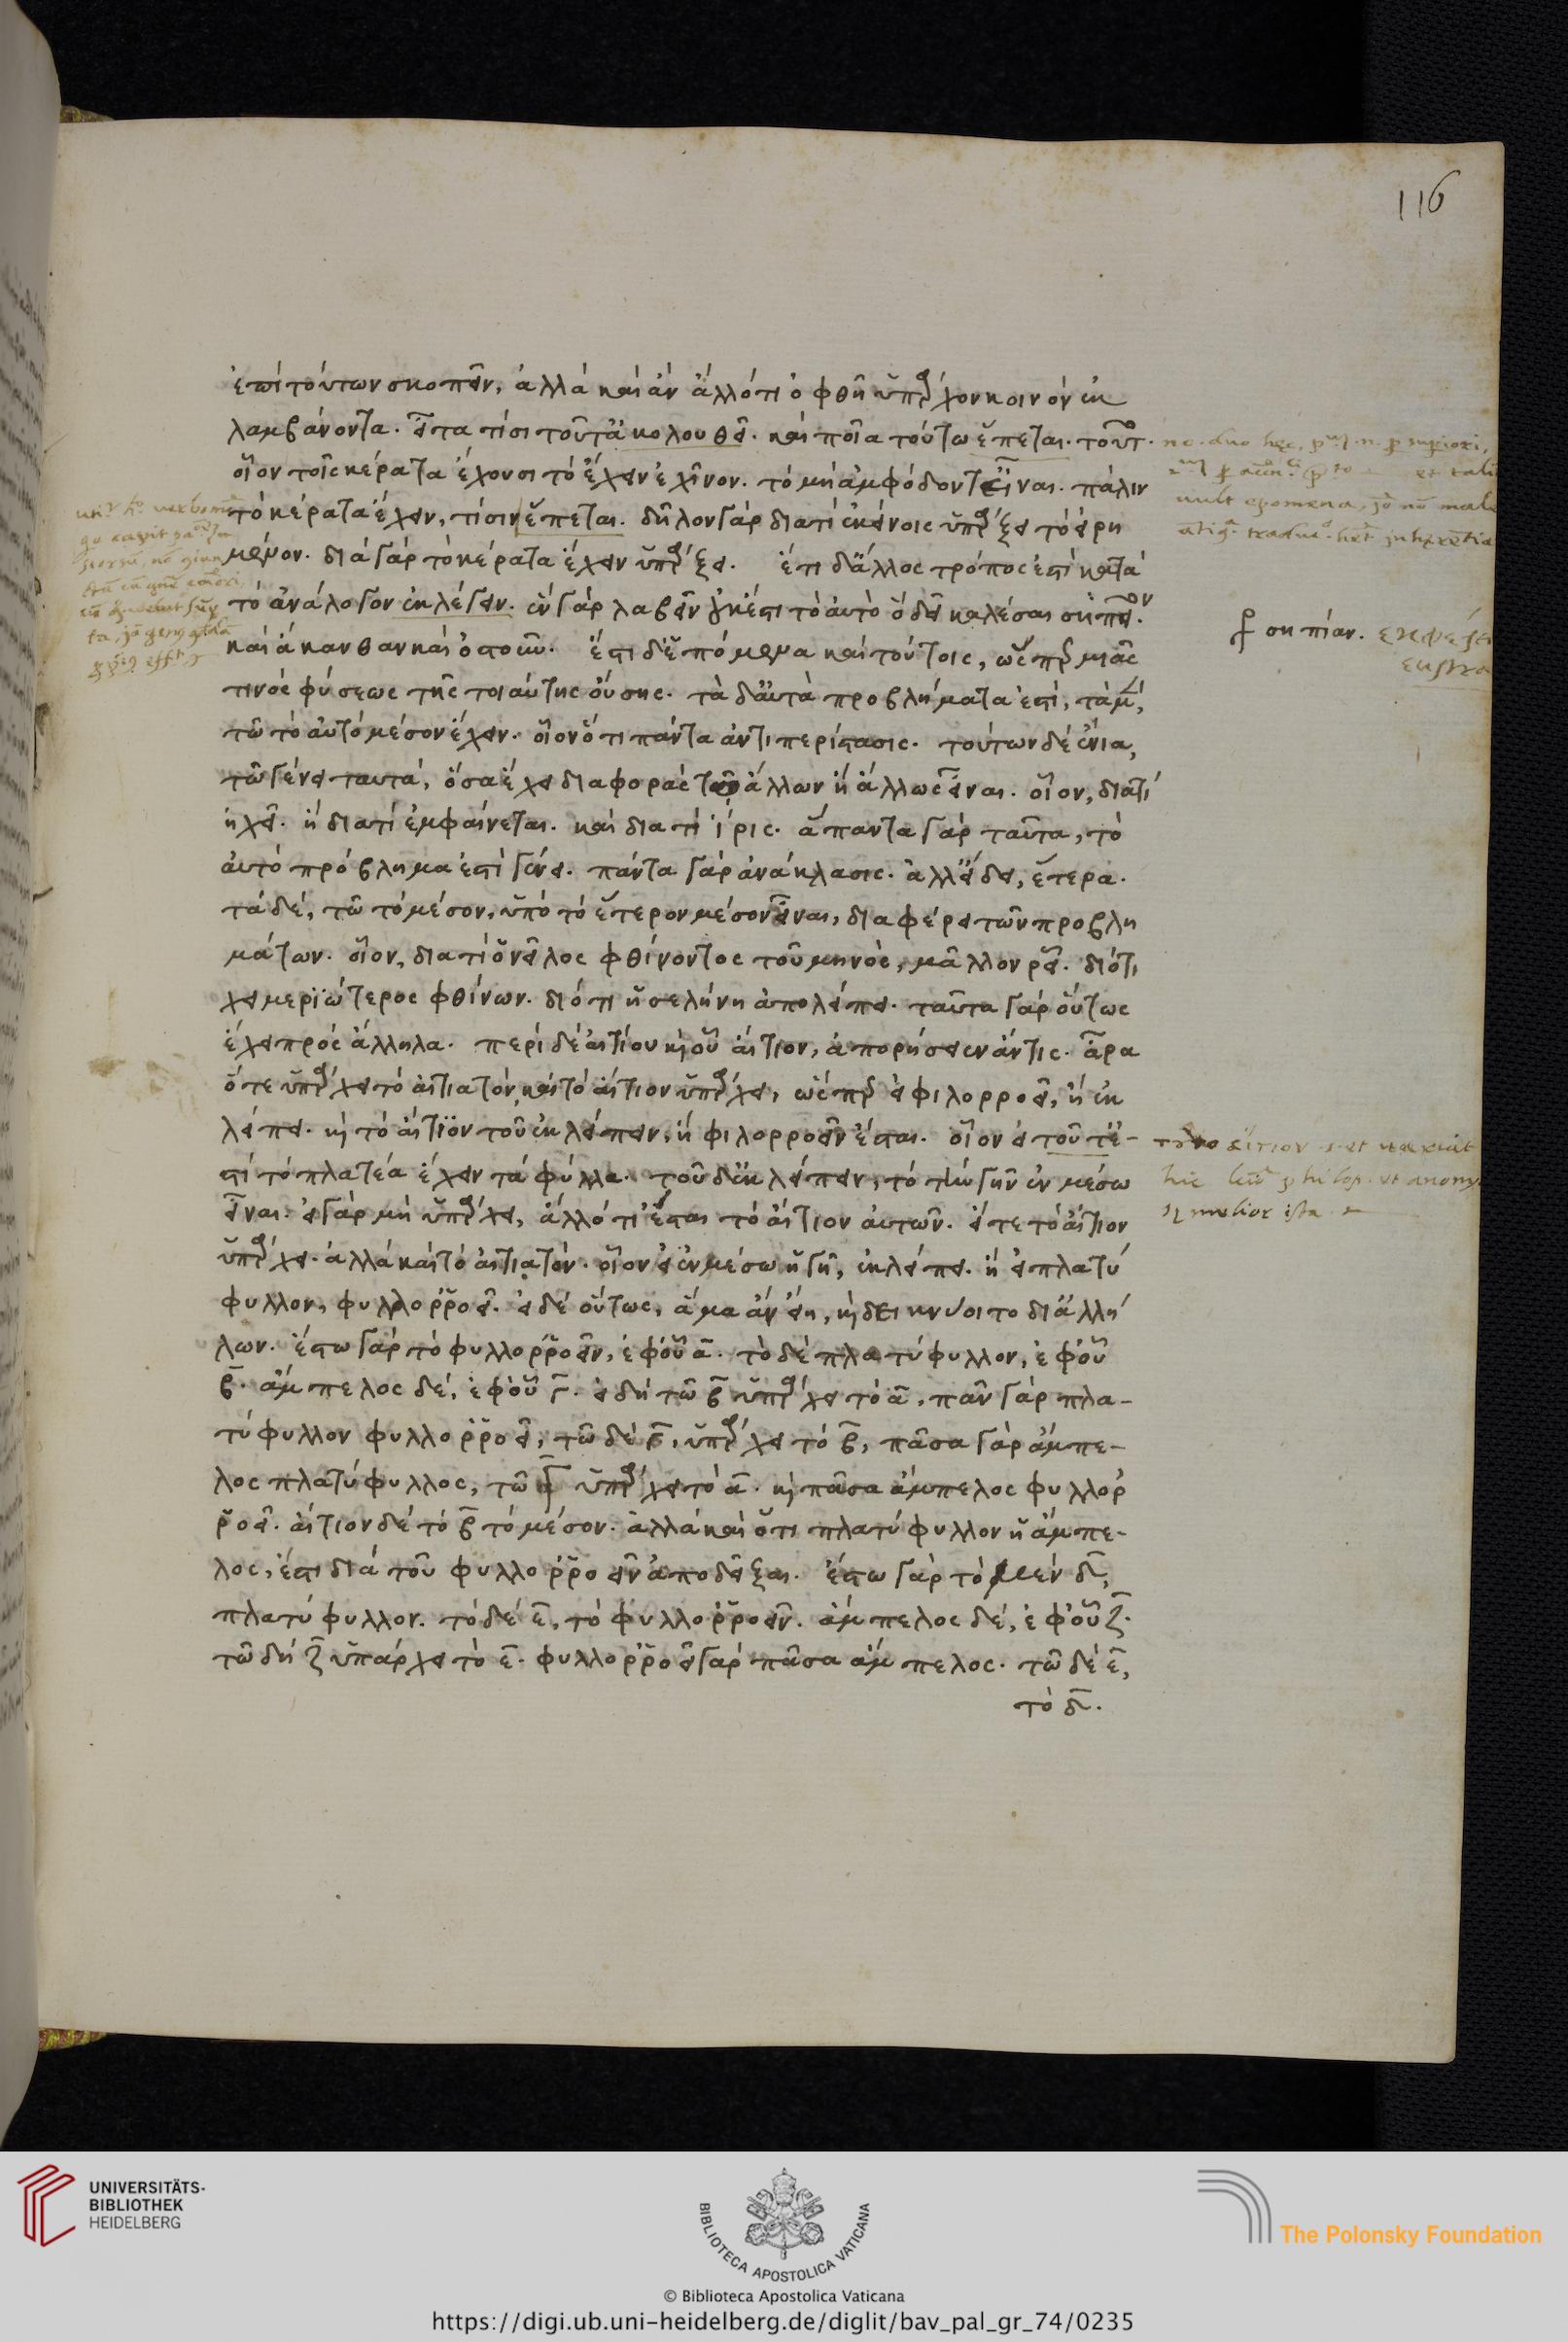 116
ἐπὶ τούτων σκοπεῖν, ἀλλὰ καὶ ἂν ἄλλό τι ὀφθῆ ὕπαρχον κοινὸν ἐκ
λαμβάνοντα. εἶτα τίσι τοῦτ ἀκολουθεῖ. καὶ ποῖα τούτω ἕπεται. τουτ.
οἷον τοῖς κέρατα ἔχουσι τὸ ἔχειν ἐχῖνον. τὸ μὴ ἀμφόδοντ εἶναι. πάλιν
τὸ κέρατα ἔχειν, τίσιν ἕπεται. δῆλον γὰρ διατί ἐκείνοις ὑπάρξει τὸ εἰρη
μένον. διὰ γὰρ τὸ κέρατα ἔχειν ὑπάρξει. ἔτι δ ἄλλος τρόπος ἐστὶ κατὰ
τὸ ἀνάλογον ἐκλέγειν. ἓν γὰρ λαβεῖν οὐκ ἔστι τὸ αὐτὸ ὃ δεῖ καλέσαι σήπιον.
καὶ ἄκανθαν καὶ ὀστοῦν. ἔστι δ ἑπόμενα καὶ τούτοις, ὥσπερ μιᾶς
τινὸς φύσεως τῆς τοιαύτης οὔσης. τὰ δ αὐτὰ προβλήματα ἐστί, τὰ μέν,
τῶ τὸ αὐτὸ μέσον ἔχειν. οἷον ὅτι πάντα ἀντιπερίστασις. τούτων δὲ ἔνια,
τῶ γένει ταυτά, ὅσα ἔχει διαφορὰς τῶ ἄλλων ἢ ἄλλως εἶναι. οἷον, διατί
ἠχεῖ. ἢ διατί ἐμφαίνεται. καὶ διατί ἶρις. ἅπαντα γὰρ ταῦτα, τὸ
αὐτὸ πρόβλημα ἐστὶ γένει. πάντα γὰρ ἀνάκλασις. ἀλλ εἴδει, ἕτερα.
τὰ δέ, τῶ τὸ μέσον, ὑπὸ τὸ ἕτερον μέσον εἶναι, διαφέρει τῶν προβλη
μάτων. οἷον, διατί ὁ νεῖλος φθίνοντος τοῦ μηνὸς, μᾶλλον ῥεῖ. διότι
χειμεριώτερος φθίνων. διότι ἡ σελήνη ἀπολείπει. ταῦτα γὰρ οὕτως
ἔχει πρὸς ἄλληλα. περὶ δὲ αἰτίου καὶ οὗ αἴτιον, ἀπορήσειεν ἄν τις. ἆρα
ὅτε ὑπάρχει τὸ αἰτιατόν, καὶ τὸ αἴτιον ὑπάρχει, ὥσπερ εἰ φιλορροεῖ, ἢ ἐκ
λείπει. καὶ τὸ αἴτιον τοῦ ἐκλείπειν, ἢ φιλορροεῖν ἔσται. οἷον εἰ τοῦτ ἔ-
στί τὸ πλατέα ἔχειν τὰ φύλλα. τοῦ δ ἐκλείπειν, τὸ τὴν γῆν ἐν μέσω
εἶναι. εἰ γὰρ μὴ ὑπάρχει, ἄλλό τι ἔσται τὸ αἴτιον αὐτῶν. εἴ τε τὸ αἴτιον
ὑπάρχει. ἀλλὰ καὶ τὸ αἰτιατόν. οἷον εἰ ἐν μέσω ἡ γῆ, ἐκλείπει. ἢ εἰ πλατύ
φυλλον, φυλλορροεῖ. εἰ δὲ οὕτως, ἅμα ἂν εἴη, καὶ δεικνύοιτο δι ἀλλή
λων. ἔστω γὰρ τὸ φυλλορροεῖν, ἐφ οὗ α. τὸ δὲ πλατύφυλλον, ἐφ οὗ
β. ἄμπελος δέ, ἐφ οὗ γ. εἰ δὴ τῶ β ὑπάρχει τὸ α, πᾶν γὰρ πλα-
τύφυλλον φυλλορροεῖ, τῶ δὲ γ, ὑπάρχει τὸ β, πᾶσα γὰρ ἄμπε-
λος πλατύφυλλος, τῶ γ ὑπάρχει τὸ α. καὶ πᾶσα ἄμπελος φυλλορ
ροεῖ. αἴτιον δὲ τὸ β τὸ μέσον. ἀλλὰ καὶ ὅτι πλατύφυλλον ἡ ἄμπε-
λος, ἔστι διὰ τοῦ φυλλορροεῖν ἀποδεῖξαι. ἔστω γὰρ τὸ μὲν δ,
πλατύφυλλον. τὸ δὲ ε, τὸ φυλλορροεῖν. ἄμπελος δέ, ἐφ οὗ ζ.
τῶ δὴ ζ ὑπάρχει τὸ ε. φυλλορροεῖ γὰρ πᾶσα ἄμπελος. τῶ δὲ ε,
τὸ δ.
σηπίαν.
UNIVERSITÄTS-
BIBLIOTHEK
HEIDELBERG
BIBLIOTECA APOSTOLICA VATICANA
The Polonsky Foundation
© Biblioteca Apostolica Vaticana
https://digi.ub.uni-heidelberg.de/diglit/bav_pal_gr_74/0235